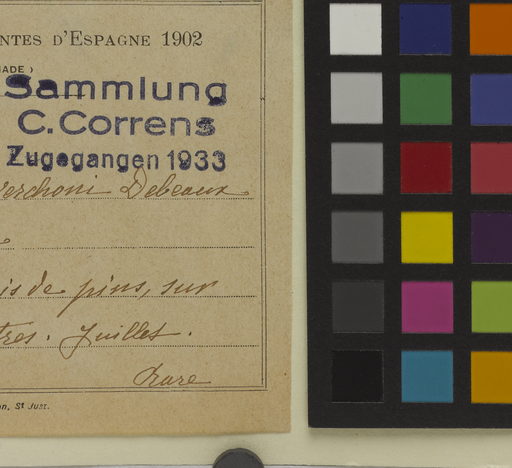 NTES D'ESPAGNE 1902
ADE )
Sammlung
C. Correns
Zugegangen 1933
erchoni Debeaux
is de pins, sur
tres. Juillet.
Rare
on, St Just.